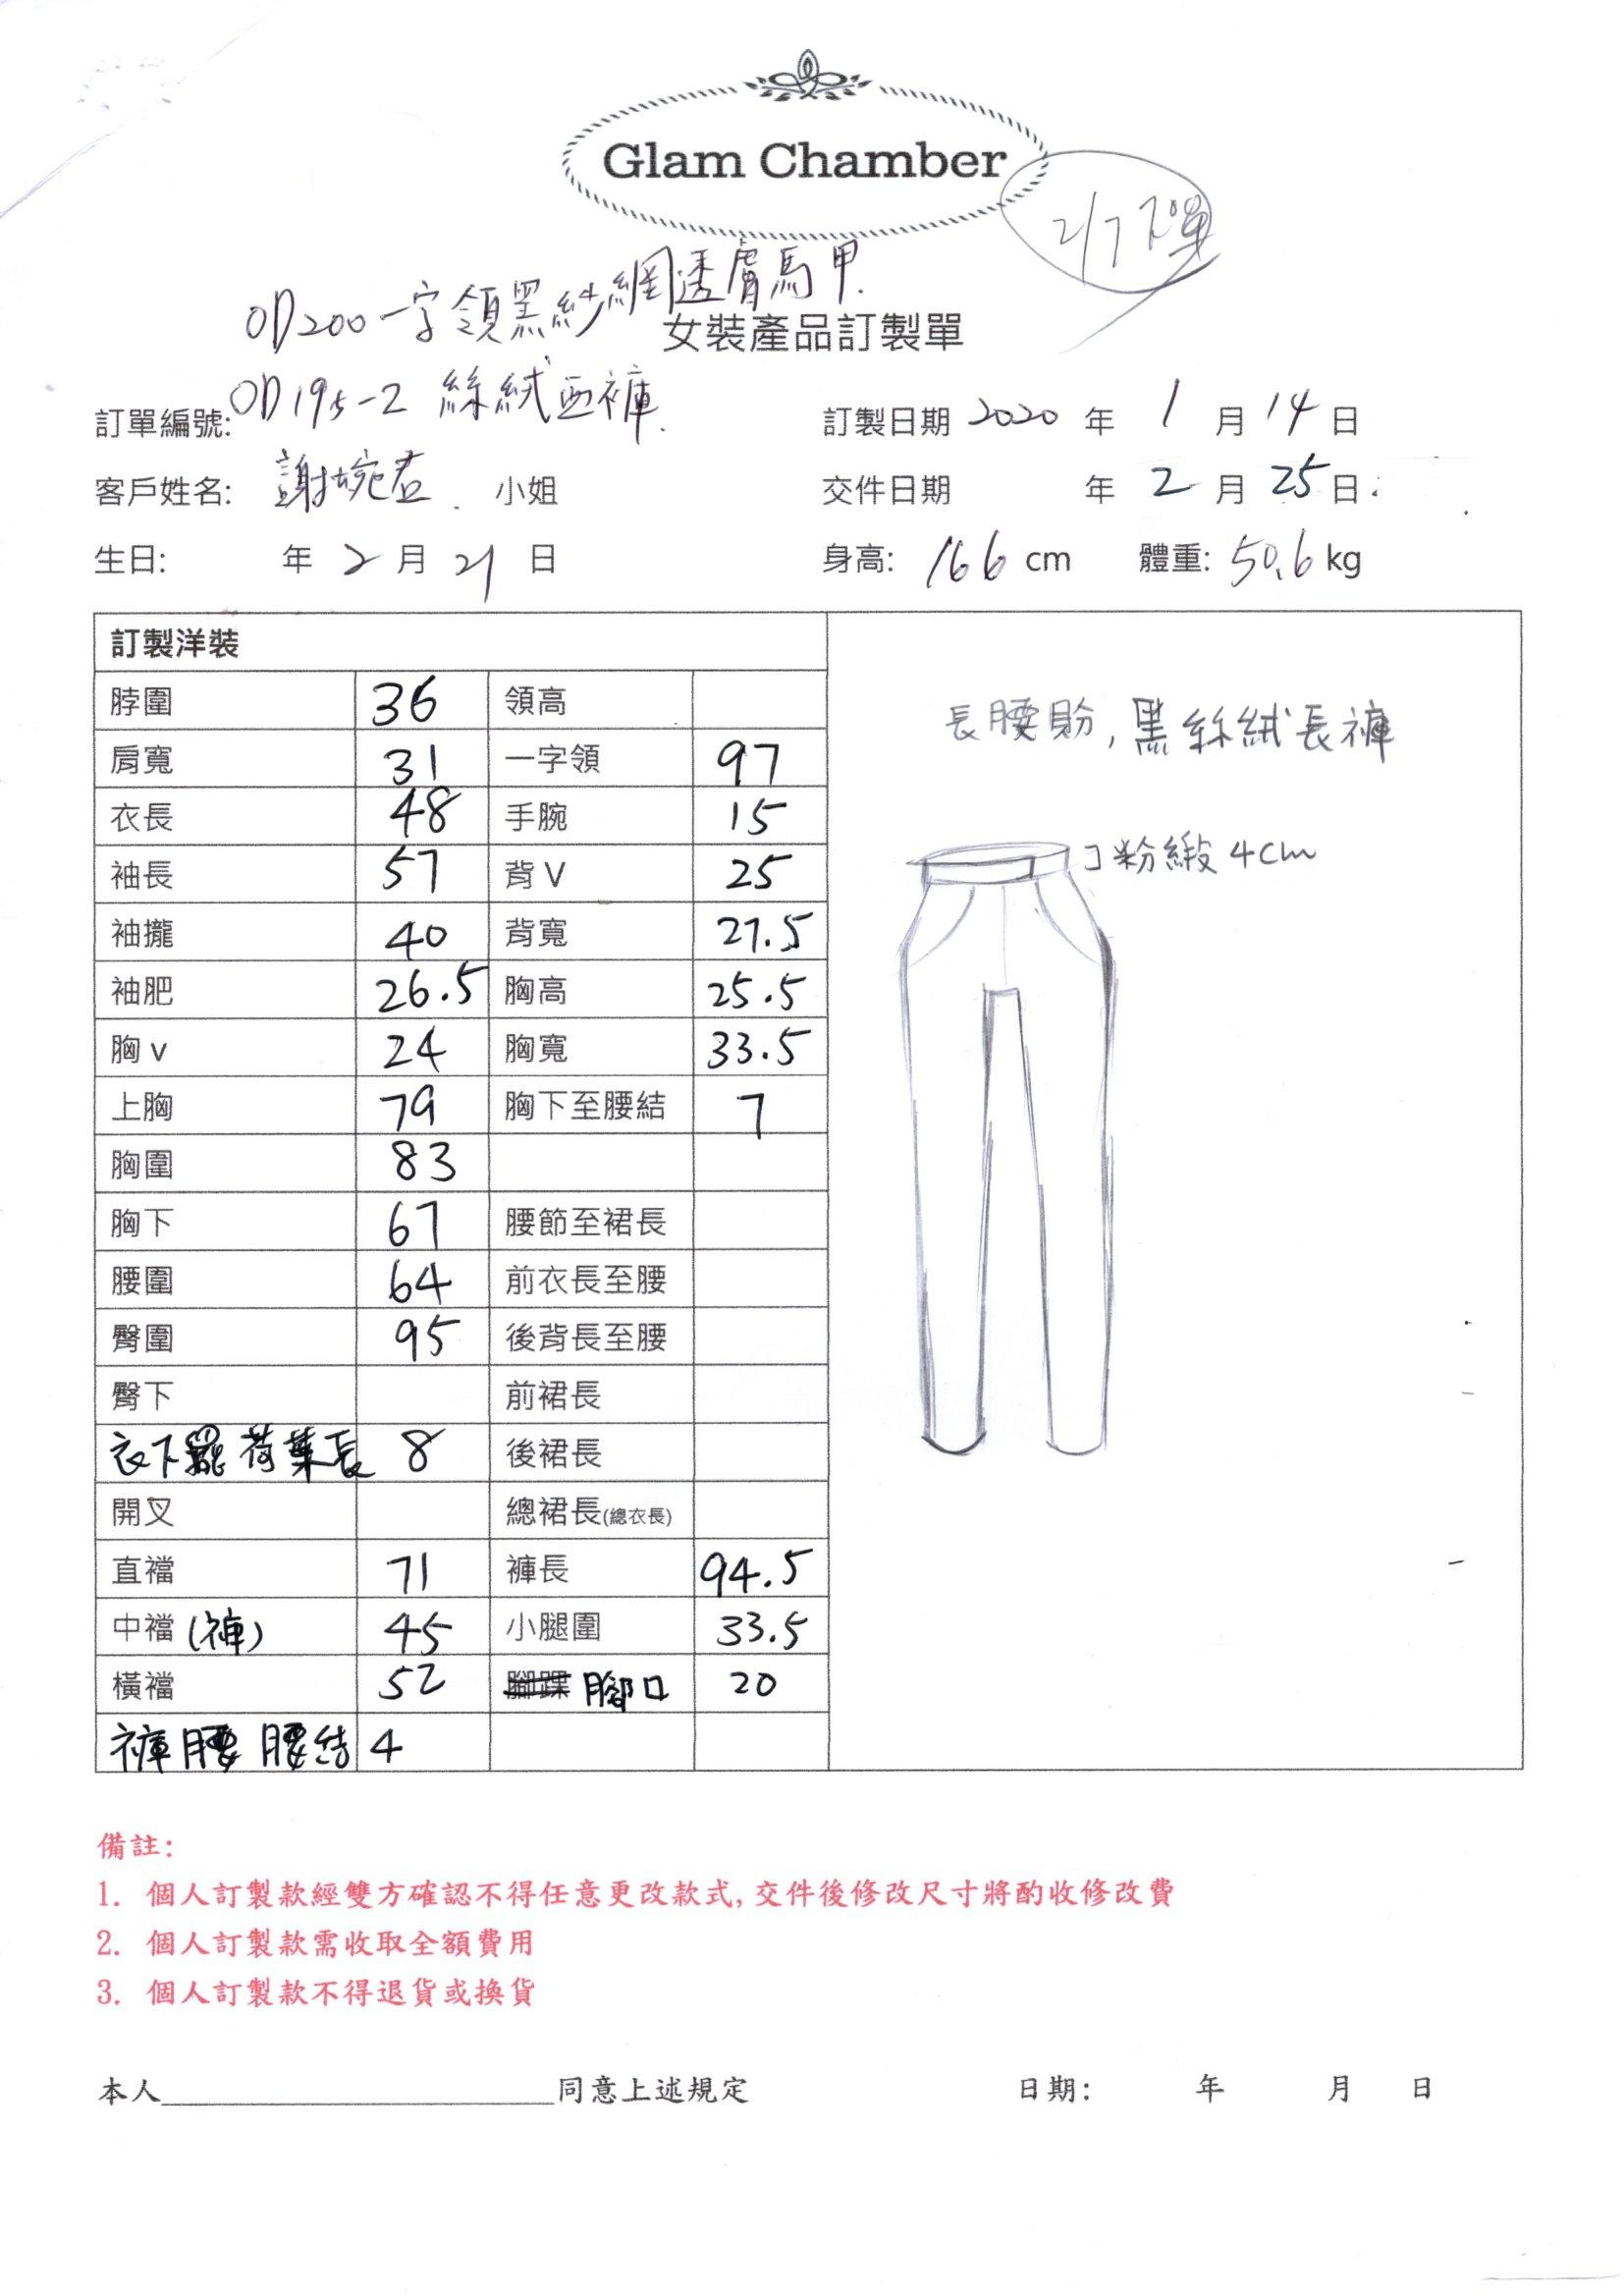 Glam Chamber
2/7下單
OD200一字領黑紗網透膚馬甲.
女裝產品訂製單
OD195-2 絲絨西褲.
訂單編號:
訂製日期 2020 年 1 月 14 日
客戶姓名: 謝婉君. 小姐
交件日期 年 2 月 25 日.
生日: 年 2 月 21 日
身高: 166 cm 體重: 50.6 kg
訂製洋裝
脖圍 36 領高
肩寬 31 一字領 97
衣長 48 手腕 15
袖長 57 背 V 25
袖攏 40 背寬 27.5
袖肥 26.5 胸高 25.5
胸 v 24 胸寬 33.5
上胸 79 胸下至腰結 7
胸圍 83
胸下 67 腰節至裙長
腰圍 64 前衣長至腰
臀圍 95 後背長至腰
臀下 前裙長
衣下擺荷葉長 8 後裙長
開叉 總裙長(總衣長)
直襠 71 褲長 94.5
中襠 (褲) 45 小腿圍 33.5
橫襠 52 腳踝 腳口 20
褲腰 腰結 4
長腰, 黑絲絨長褲
粉緞 4cm
備註:
1. 個人訂製款經雙方確認不得任意更改款式, 交件後修改尺寸將酌收修改費
2. 個人訂製款需收取全額費用
3. 個人訂製款不得退貨或換貨
本人________________________同意上述規定
日期: 年 月 日